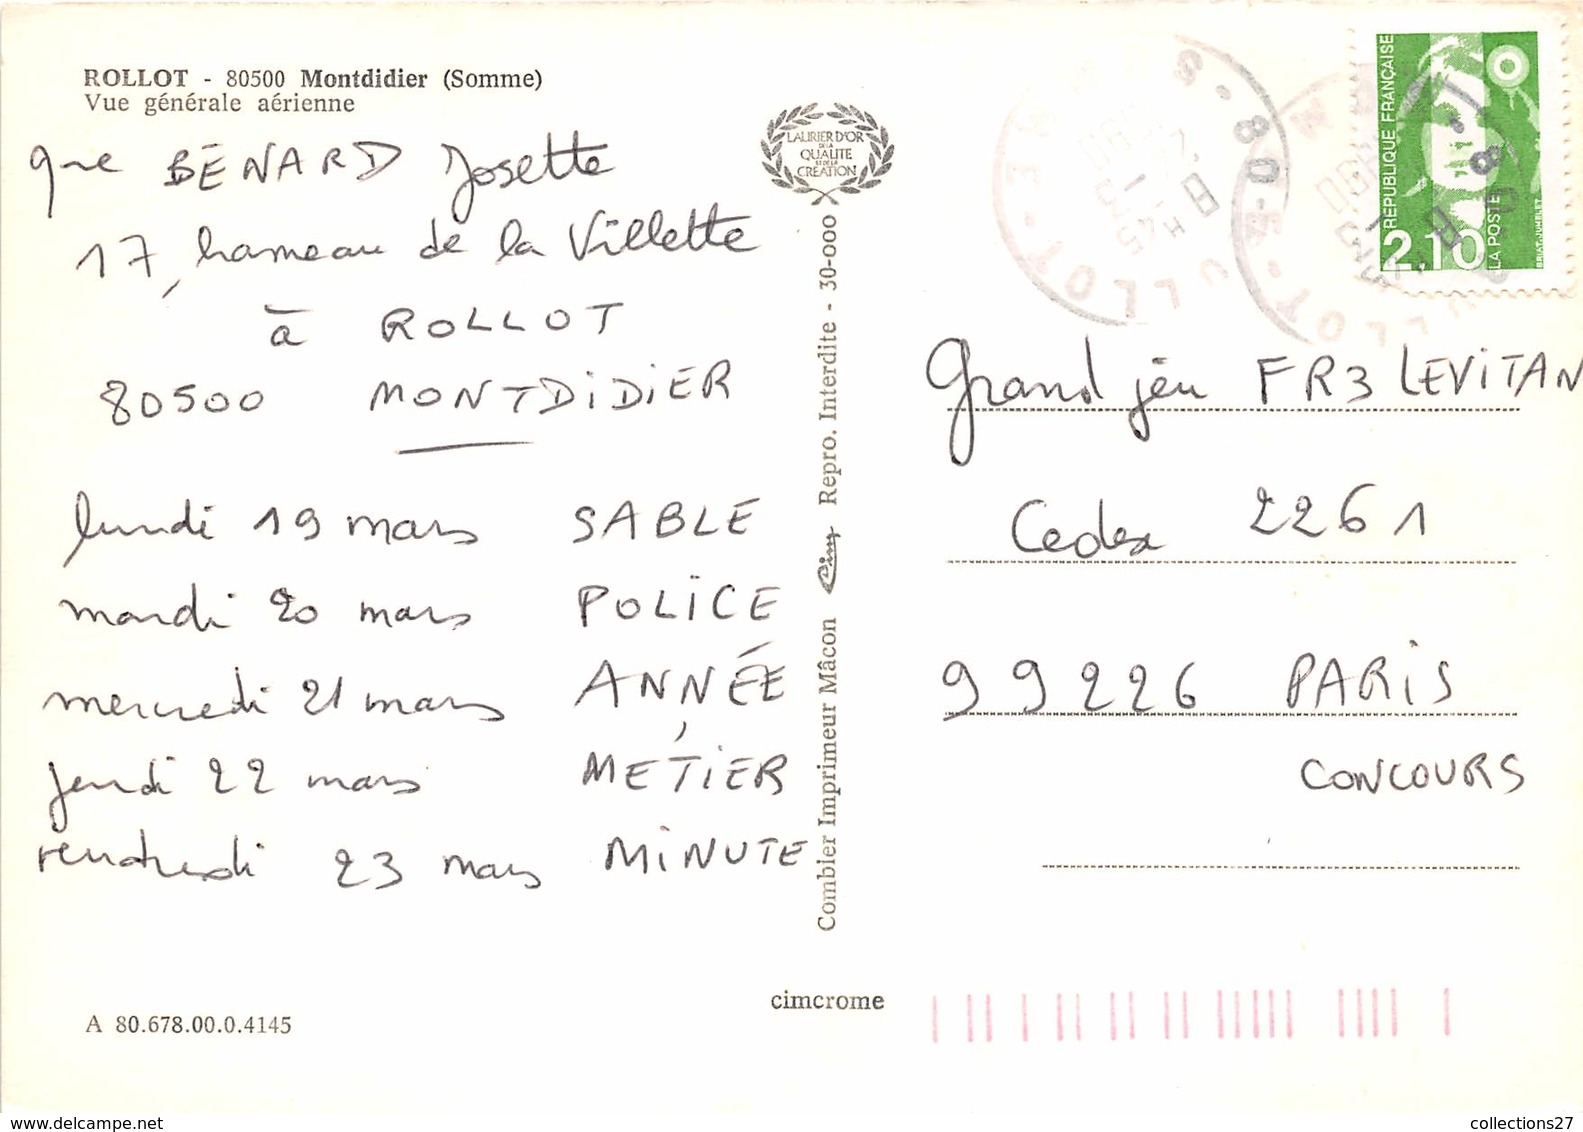 ROLLOT - 80500 Montdidier (Somme)
Vue générale aérienne
LAURIER D'OR
DE LA
QUALITE
ET DE LA
CRÉATION
que BÉNARD Josette
17, hameau de la Villette
à ROLLOT
80500 MONTDIDIER
lundi 19 mars SABLE
mardi 20 mars POLICE
mercredi 21 mars ANNÉE
jeudi 22 mars METIER
vendredi 23 mars MINUTE
Combier Imprimeur Mâcon Cim Repro. Interdite - 30-000
cimcrome
A 80.678.00.0.4145
RÉPUBLIQUE FRANÇAISE
2,10
LA POSTE
BRIAT-JUMELET
Grand jeu FR3 LEVITAN
Cedex 2261
99226 PARIS
CONCOURS
collections27